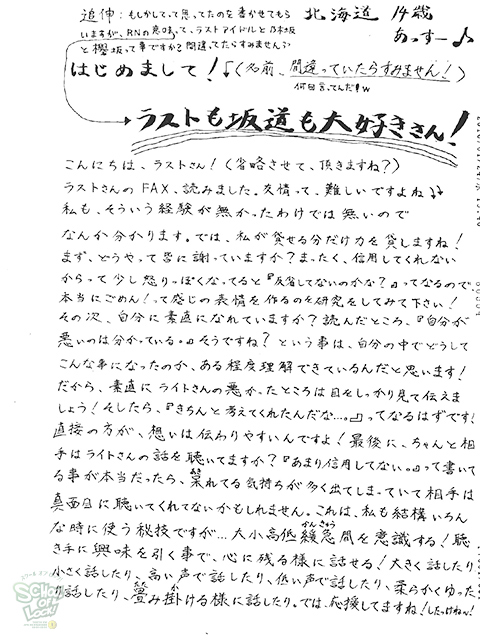 追伸:もしかしてって思ってたのを書かせてもら
いますが、RNの意味って、ラストアイドルと乃木坂
と欅坂って事ですか?間違ってたらすみません💦
北海道 14歳
あっすー♪
はじめまして!↓(名前、間違っていたらすみません!)
何回言ってんだ!w
ラストも坂道も大好きさん!
こんにちは、ラストさん!(省略させて、頂きますね?)
ラストさんのFAX、読みました。友情って、難しいですよね↓↓
私も、そういう経験が無かったわけでは無いので
なんか分かります。では、私が貸せる分だけ力を貸しますね!
まず、どうやって皆に謝っていますか?まったく、信用してくれない
からって少し怒りっぽくなってると『反省してないのかな?』ってなるので、
本当にごめん!って感じの表情を作るのを研究をしてみて下さい!
その次、自分に素直になれていますか?読んだところ、『自分が
悪いのは分かっている。』そうですね?という事は、自分の中でどうして
こんな事になったのか、ある程度理解できているんだと思います!
だから、素直にライトさんの悪かったところは目をしっかり見て伝えま
しょう!そしたら、『きちんと考えてくれたんだな…。』ってなるはずです!
直接の方が、想いは伝わりやすいんですよ!最後に、ちゃんと相
手はライトさんの話を聴いてますか?『あまり信用してない。』って書いて
る事が本当だったら、呆れてる気持ちが多く出てしまっていて相手は
真面目に聴いてくれてないかもしれません。これは、私も結構いろん
な時に使う秘技ですが…大小高低緩急間を意識する!聴
かんきゅう
き手に興味を引く事で、心に残る様に話せる!大きく話したり
小さく話したり、高い声で話したり、低い声で話したり、柔らかくゆった
り話したり、畳み掛ける様に話したり。では、応援してますね!したっけね~!
SCHOOL OF LOCK!